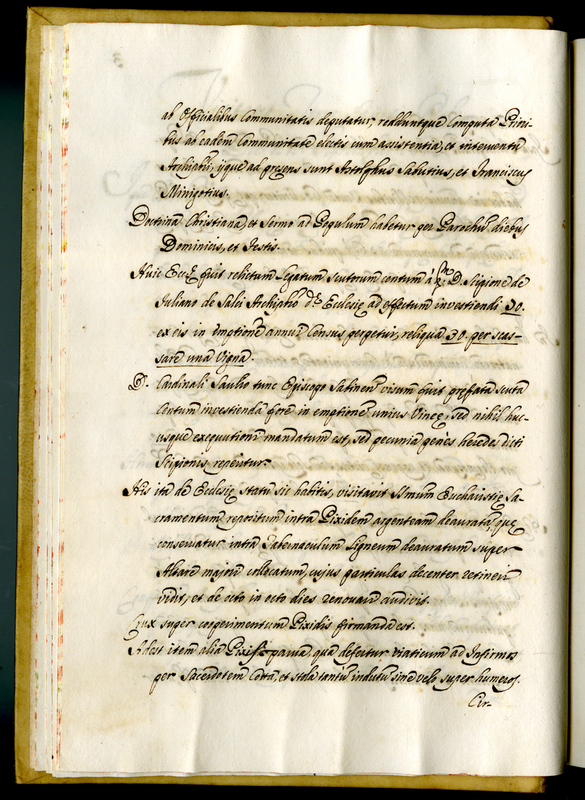 ab Officialibus Communitatis deputatur, redduntque Computa
tus ab eadem Communitate electis cum assistentia, et interventu
Archipbri, ijque ad presens sunt Astolphus Sabutius, et Franciscus
Minigotius.
Doctrina Christiana, et Sermo ad Populum habetur per Parochũ diebus
Dominicis, et Festis.
Huic Eccę fuit relictum Legatum scutorum centum à D. Scipione de
Iuliano de Salci Archipbro dę Ecclesię ad effectum investiendi 70.
ex eis in emptionẽ annui Census perpetui, reliqua 30. per scas-
sare una Vigna.
D. Cardinali Saulio tunc Episcopo Sabinen visum fuit prefata scuta
Centum investienda forẽ in emptionẽ unius Vineę, sed nihil huc-
usque executioni mandatum est, sed pecunia penes heredes dicti
Scipionis reperitur.
His ita de Ecclesię statu sic habitis, visitavit SSmum Eucharistię Sa-
cramentum repositum intra Pixidem argenteam deauratã, quę
conservatur intra Tabernaculum Ligneum deauratum super
Altare majori collocatum, cujus particulas decenter retineri
vidit, et de octo in octo dies renovari audivit.
Crux super coopertimentum Pixidis firmanda est.
Adest item alia Pixis parva, qua defertur viaticum ad Infirmos
per Sacerdotem Cotta, et stola tantũ indutũ sine velo super humeros.
Cir-